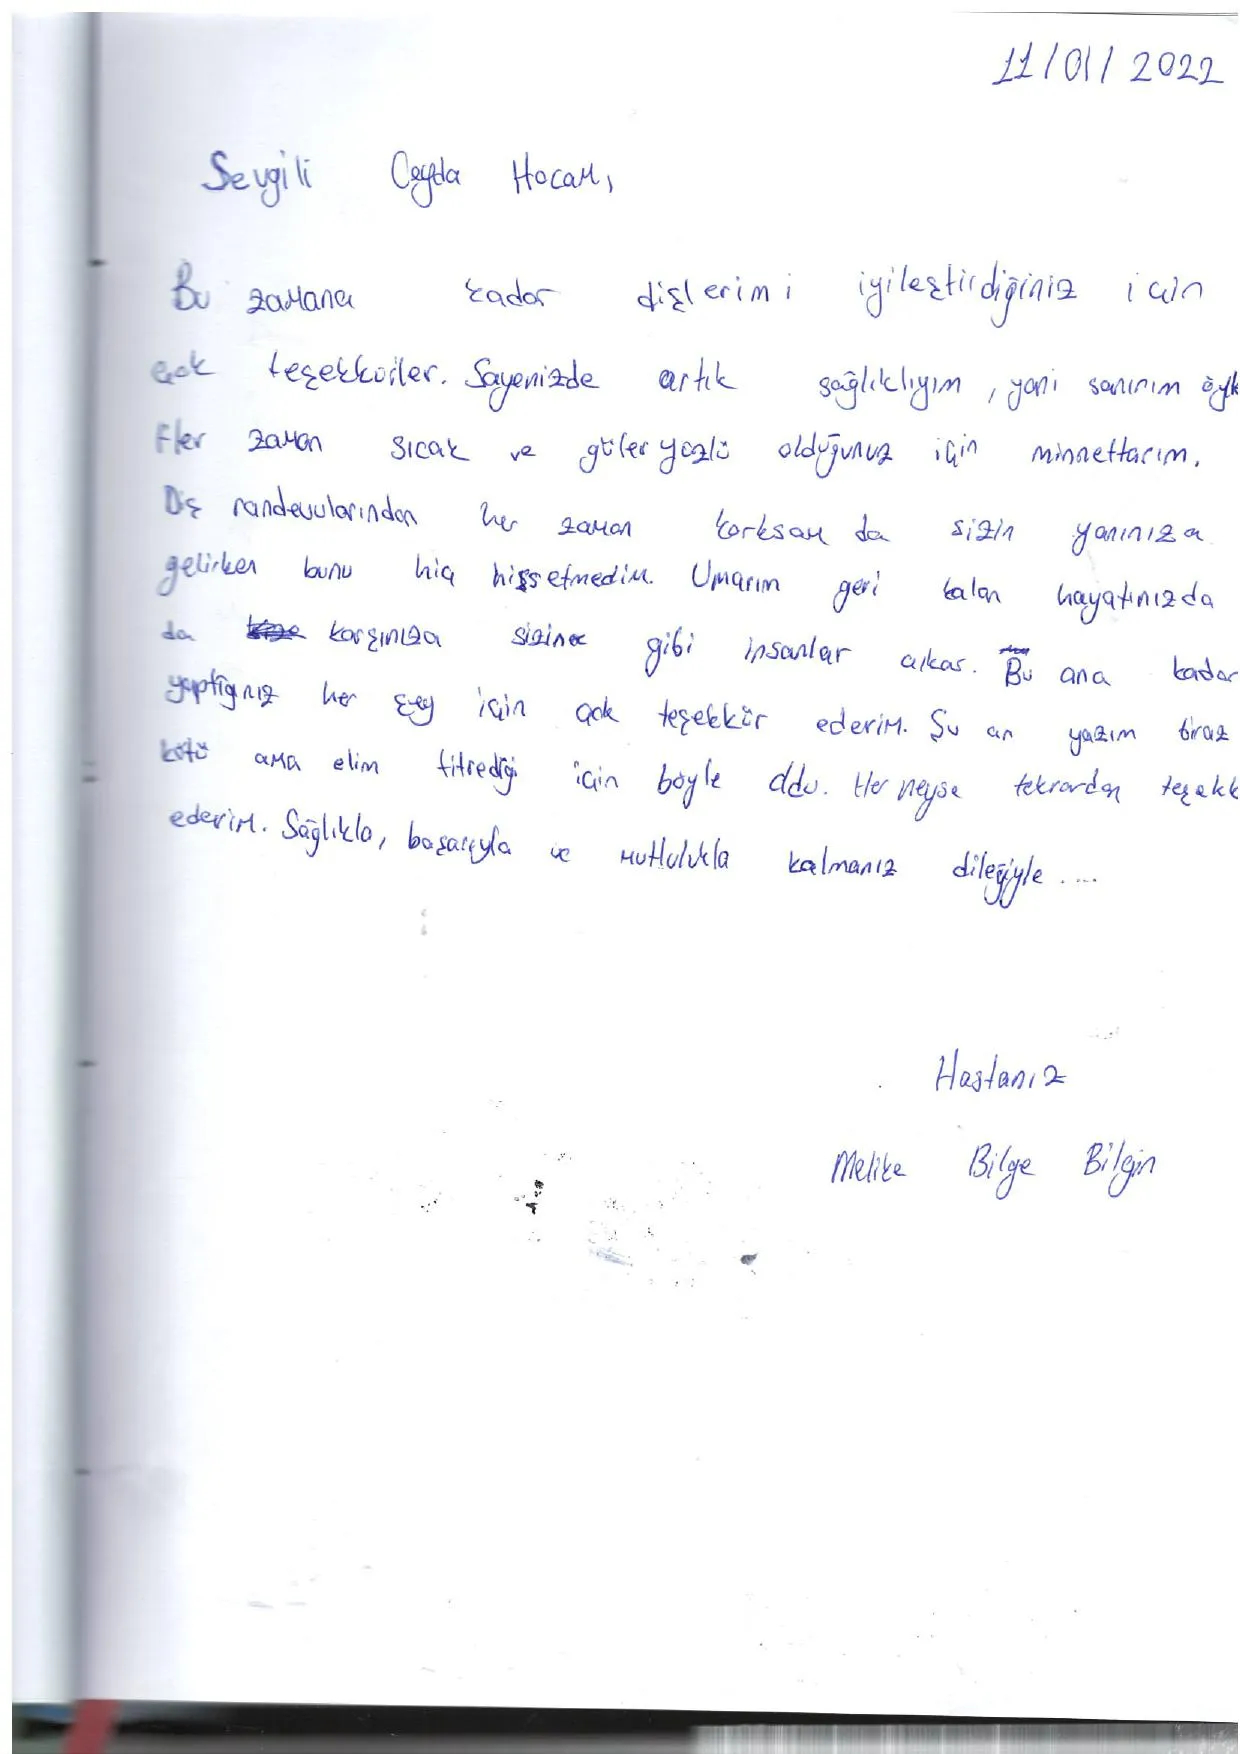 11/01/2022
Sevgili Ceyda Hocam,
Bu zamana kadar dişlerimi iyileştirdiğiniz için
çok teşekkürler. Sayenizde artık sağlıklıyım, yani sanırım öyle
Her zaman sıcak ve güler yüzlü olduğunuz için minnettarım.
Diş randevularından her zaman korksam da sizin yanınıza
gelirken bunu hiç hissetmedim. Umarım geri kalan hayatınızda
da karşınıza sizin gibi insanlar çıkar. Bu ana kadar
yaptığınız her şey için çok teşekkür ederim. Şu an yazım biraz
kötü ama elim titrediği için böyle oldu. Her neyse tekrardan teşekk
ederim. Sağlıkla, başarıyla ve mutlulukla kalmanız dileğiyle....
Hastanız
Melike Bilge Bilgin